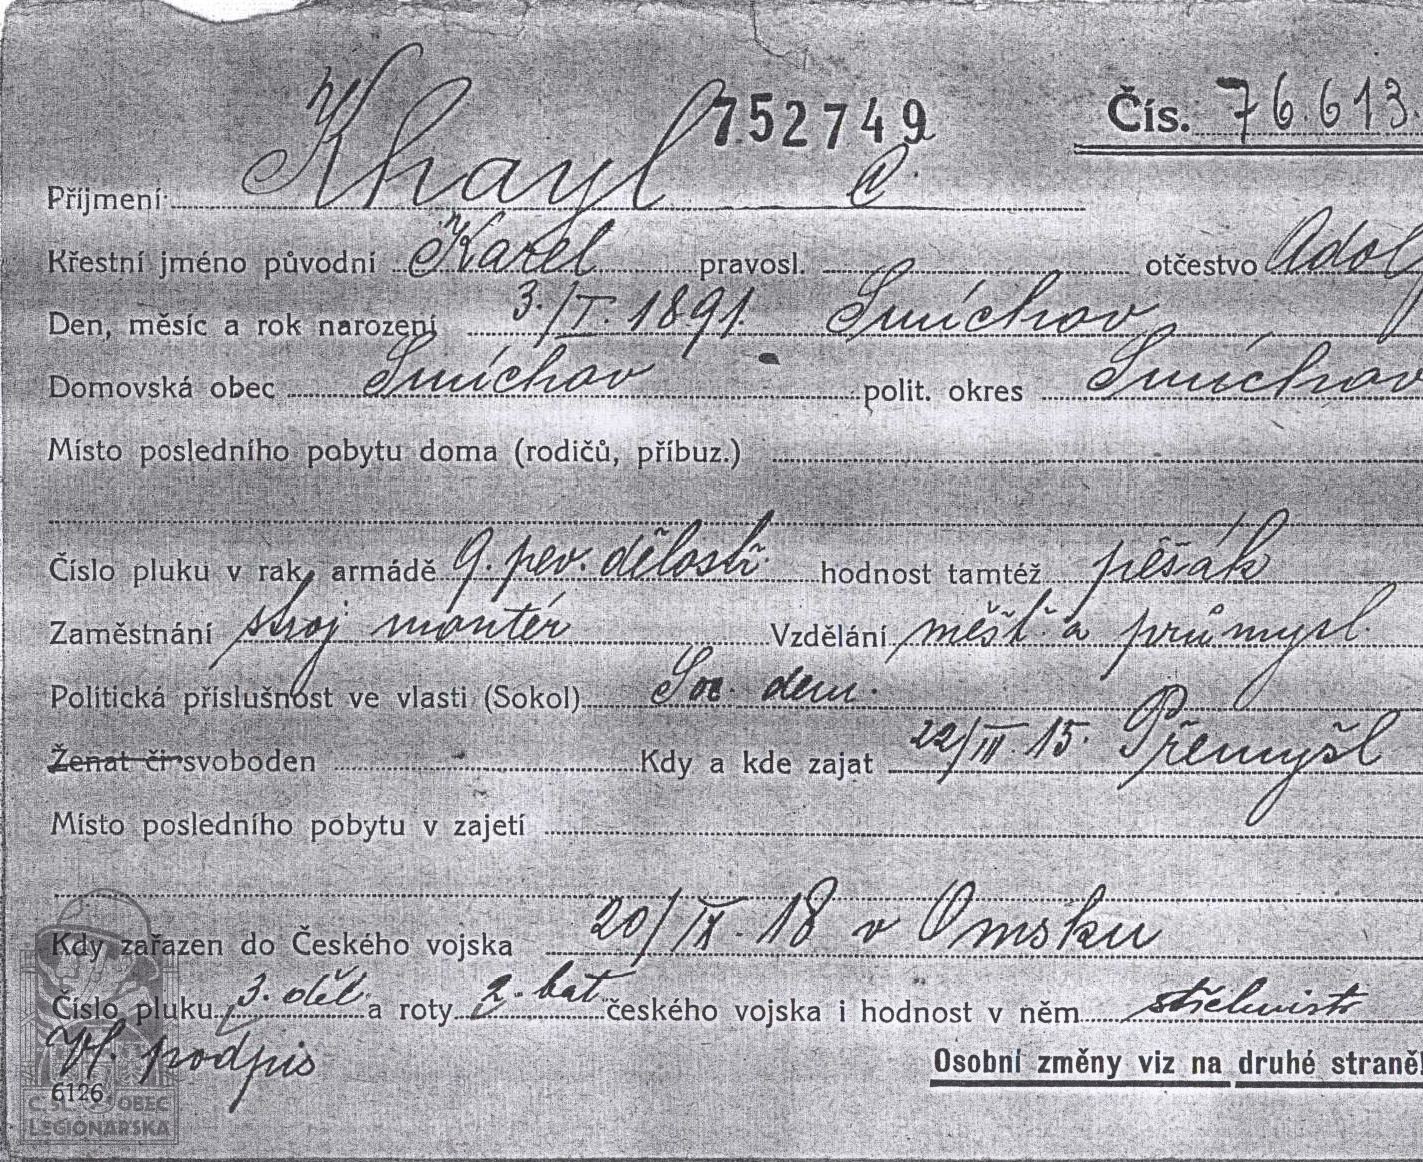 752749 Čís. 76.613.
Příjmení Khayl
Křestní jméno původní Karel pravosl. otčestvo Adolf
Den, měsíc a rok narození 3./I. 1891. Smíchov
Domovská obec Smíchov polit. okres Smíchov
Místo posledního pobytu doma (rodičů, příbuz.)
Číslo pluku v rak. armádě 9. pev. dělostř. hodnost tamtéž pěšák
Zaměstnání stroj montér Vzdělání měšť. a průmysl.
Politická příslušnost ve vlasti (Sokol) Soc. dem.
Ženat či svoboden Kdy a kde zajat 22/III. 15. Přemyšl
Místo posledního pobytu v zajetí
Kdy zařazen do Českého vojska 20/IX. 18 v Omsku
Číslo pluku 3. děl. a roty 2. bat. českého vojska i hodnost v něm
podpis Osobní změny viz na druhé straně!
6126
OBEC
LEGIONÁŘSKÁ